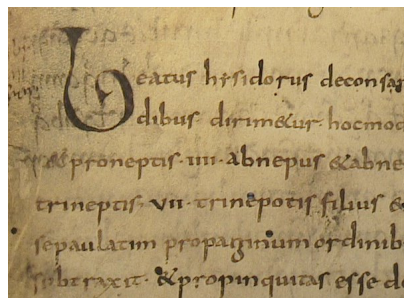 Beatus hisidorus deconsan
dibus· dirim&ur· hocmod
&proneptis· iiii· abnepus &abne
trineptis· vii· trinepotis filius &
sepaulatim propaginum ordinib
subtraxit· &propinquitas esse de